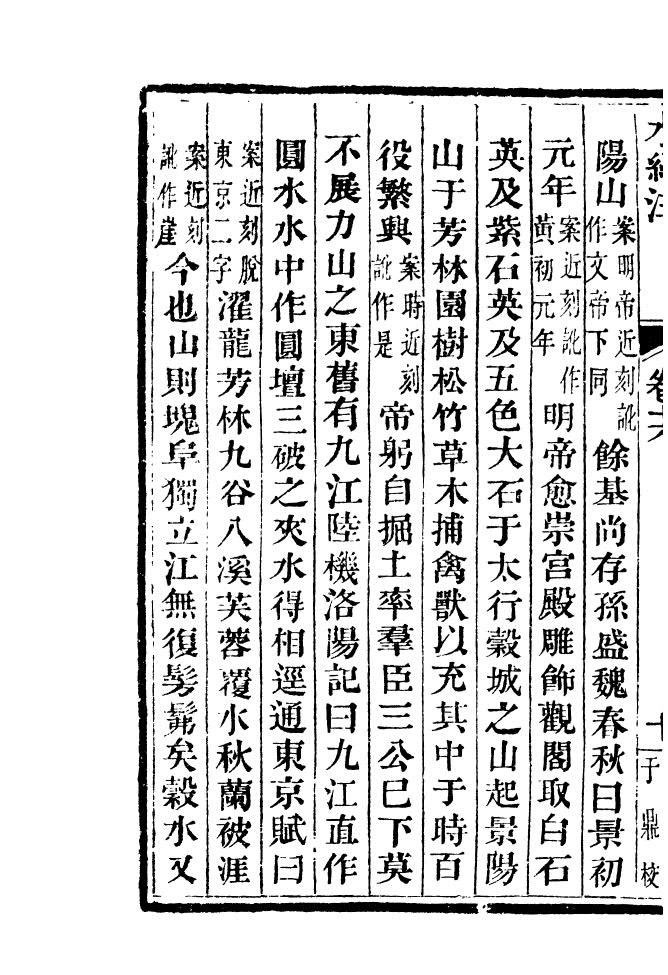 水經注
卷十六
十
于鼎校
陽山案明帝近刻訛作文帝下同餘基尚存孫盛魏春秋曰景初
元年案近刻訛作黃初元年明帝愈崇宮殿雕飾觀閣取白石
英及紫石英及五色大石于太行穀城之山起景陽
山于芳林園樹松竹草木捕禽獸以充其中于時百
役繁興案時近刻訛作是帝躬自掘土率羣臣三公已下莫
不展力山之東舊有九江陸機洛陽記曰九江直作
圓水水中作圓壇三破之夾水得相逕通東京賦曰
案近刻脫東京二字濯龍芳林九谷八溪芙蓉覆水秋蘭被涯
案近刻訛作崖今也山則塊阜獨立江無復髣髴矣穀水又